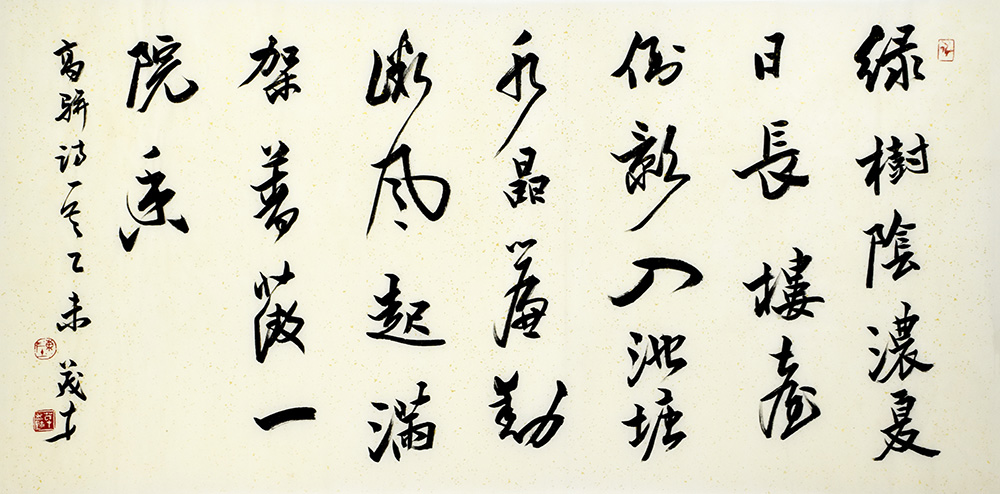 綠樹陰濃夏
日長樓臺
倒影入池塘
水晶簾動
微風起滿
架薔薇一
院香
高駢詩一首乙未茂